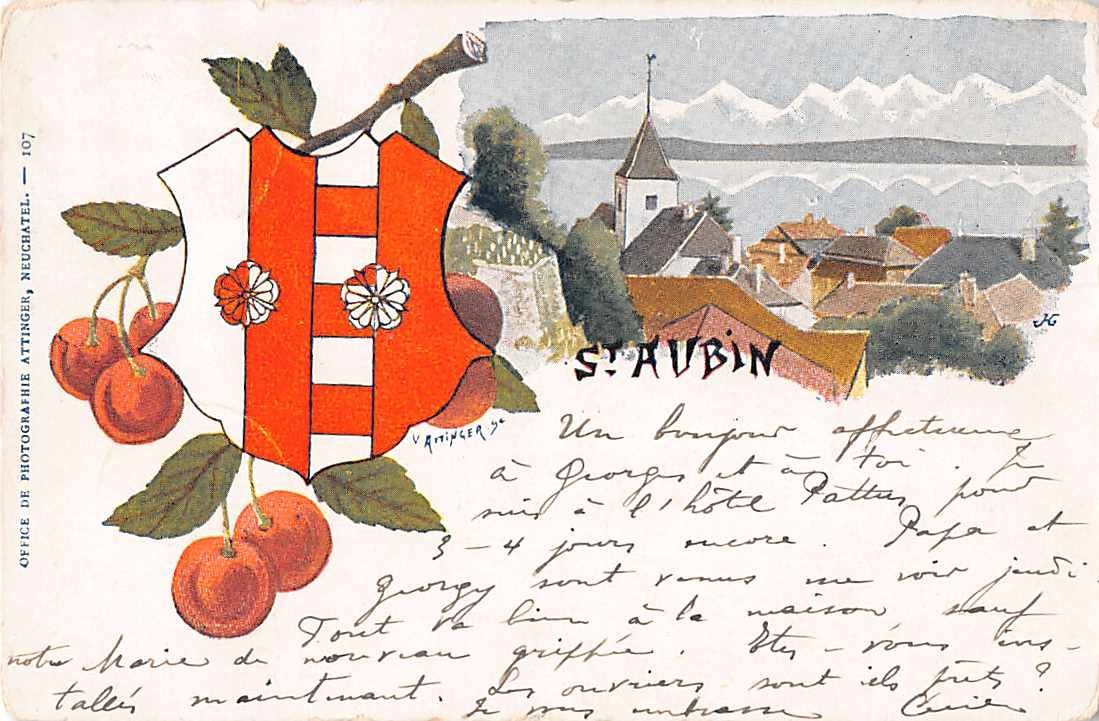 OFFICE DE PHOTOGRAPHIE ATTINGER, NEUCHATEL. — 107
ST AUBIN
V ATTINGER sc
Un bonjour affectueux
à Georges et à toi. Je
suis à l'hôtel Pattus pour
3 – 4 jours encore. Papa et
Georgy sont venus me voir jeudi.
Tout va bien à la maison sauf
notre Marie de nouveau griffée. Etes-vous ins-
tallés maintenant. Les ouvriers sont ils prêts?
Je vous embrasse Cécile